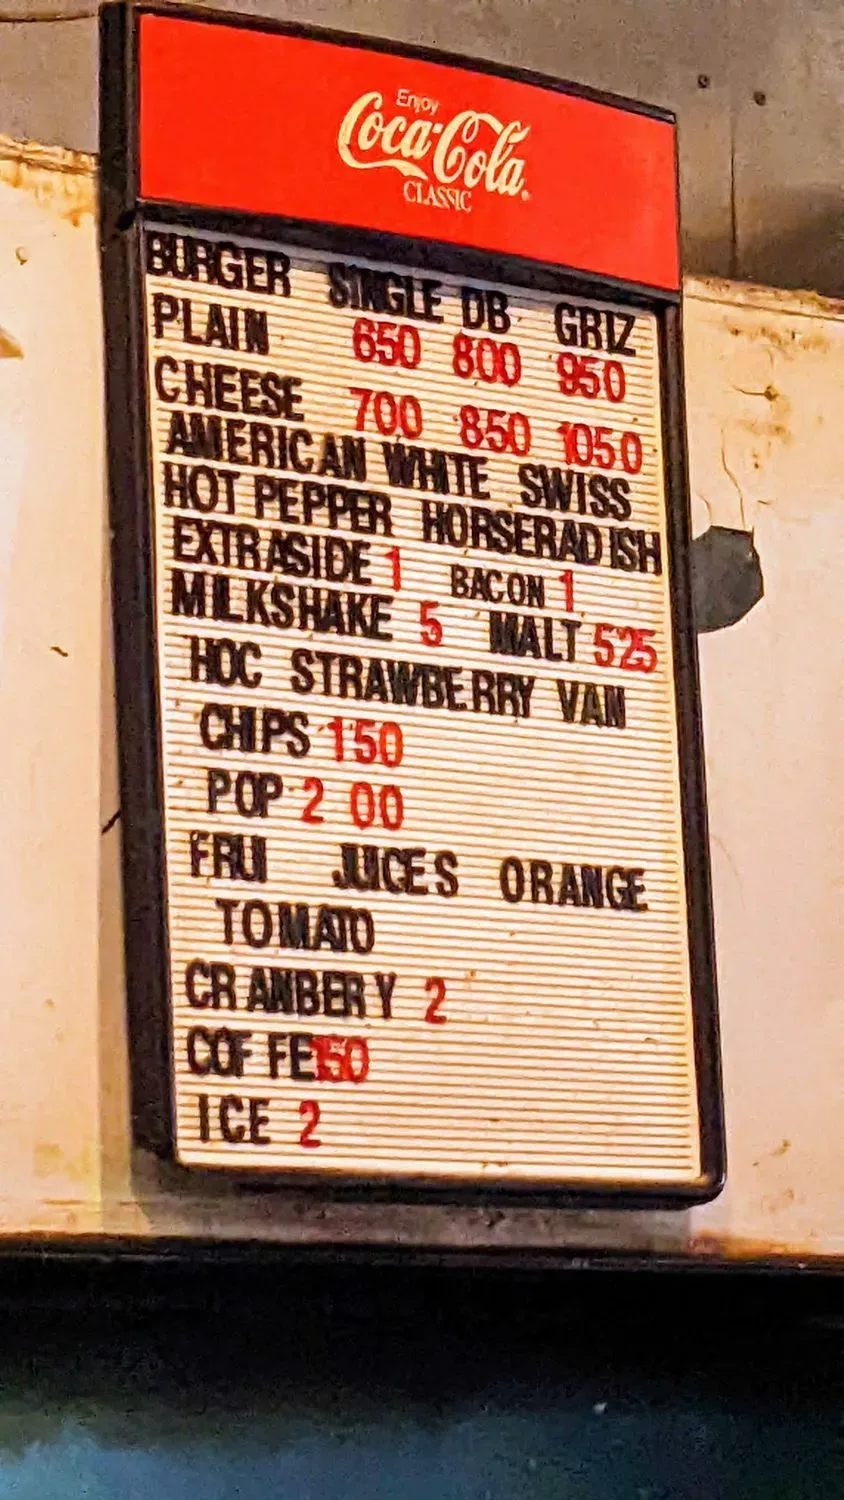 Enjoy
Coca-Cola
CLASSIC
BURGER SINGLE DB GRIZ
PLAIN 650 800 950
CHEESE 700 850 1050
AMERICAN WHITE SWISS
HOT PEPPER HORSERADISH
EXTRASIDE 1 BACON 1
MILKSHAKE 5 MALT 525
HOC STRAWBERRY VAN
CHIPS 150
POP 2 00
FRUI JUICES ORANGE
TOMATO
CRANBERY 2
COFFE 150
ICE 2